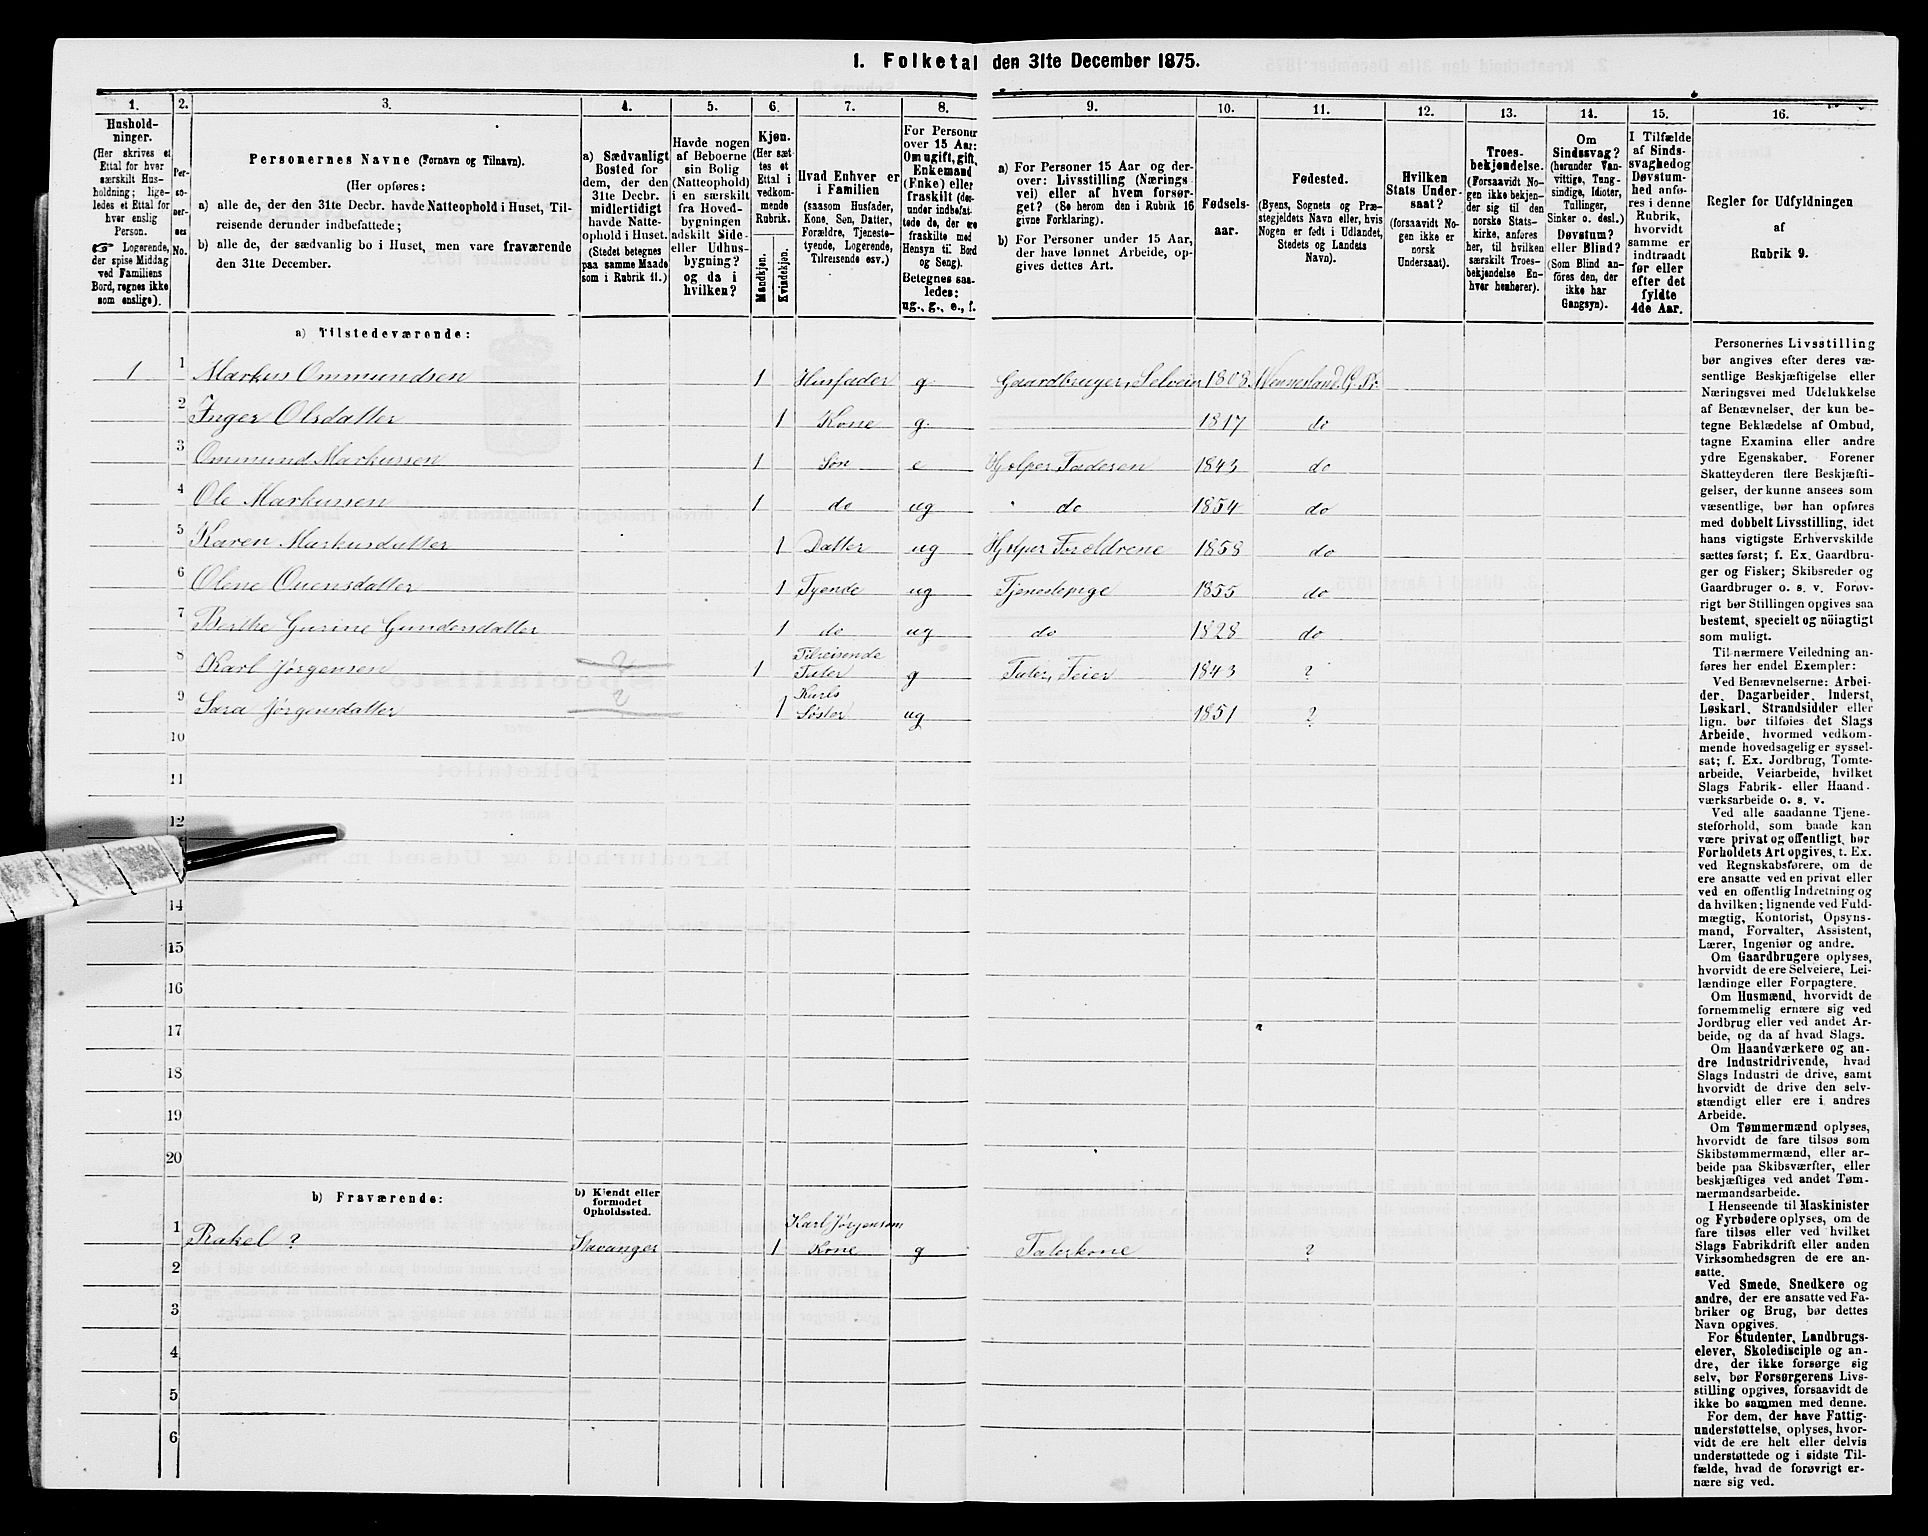 1. Folketal den 31te December 1875.
1. 2. 3. 4. 5. 6. 7. 8. 9. 10. 11. 12. 13. 14. 15. 16.
Husholdninger.
(Her skrives et
Ettal for hver
særskilt Hus-
holdning; lige-
ledes et Ettal for
hver enslig
Person.
Logerende,
der spise Middag
ved Familiens
Bord, regnes ikke
som enslige).
Per-
so-
ner-
nes
No.
Personernes Navne (Fornavn og Tilnavn).
(Her opføres:
a) alle de, der den 31te Decbr. havde Natteophold i Huset, Til-
reisende derunder indbefattede;
b) alle de, der sædvanlig bo i Huset, men vare fraværende
den 31te December.
a) Sædvanligt
Bosted for
dem, der den
31te Decbr.
midlertidigt
havde Natte-
ophold i Huset.
(Stedet betegnes
paa samme Maade
som i Rubrik 11.)
Havde nogen
af Beboerne
sin Bolig
(Natteophold)
i en særskilt
fra Hoved-
bygningen
adskilt Side-
eller Udhus-
bygning?
og da i
hvilken?
Kjøn.
(Her sæt-
tes et
Ettal i
vedkom-
mende
Rubrik.
Mandkjøn.
Kvindekjøn.
Hvad Enhver er
i Familien
(saasom Husfader,
Kone, Søn, Datter,
Forældre, Tjeneste-
tyende, Logerende,
Tilreisende osv.)
For Personer
over 15 Aar:
Om ugift, gift,
Enkemand
(Enke) eller
fraskilt (der-
under indbefat-
tede de, der ere
fraskilte med
Hensyn til Bord
og Seng).
Betegnes saa-
ledes:
ug., g., e., f.
a) For Personer 15 Aar og der-
over: Livsstilling (Nærings-
vei) eller af hvem forsør-
get? (Se herom den i Rubrik 16
givne Forklaring).
b) For Personer under 15 Aar,
der have lønnet Arbeide, op-
gives dettes Art.
Fødsels-
aar.
Fødested.
(Byens, Sognets og Præ-
stegjeldets Navn eller, hvis
Nogen er født i Udlandet,
Stedets og Landets
Navn).
Hvilken
Stats Under-
saat?
(forsaavidt No-
gen ikke er
norsk
Undersaat).
Troes-
bekjendelse.
(Forsaavidt No-
gen ikke bekjen-
der sig til den
norske Stats-
kirke, anføres
her, til hvilken
særskilt Troes-
bekjendelse En-
hver henhører).
Om
Sindssvag?
(herunder Van-
vittige, Tung-
sindige, Idioter,
Tullinger,
Sinker o. desl.)
Døvstum?
eller Blind?
(Som Blind an-
føres den, der
ikke har
Gangsyn).
I Tilfælde
af Sinds-
svaghed og
Døvstum-
hed anfø-
res i denne
Rubrik,
hvorvidt
samme er
indtraadt
før eller
efter det
fyldte
4de Aar.
Regler for Udfyldningen
af
Rubrik 9.
a) Tilstedeværende:
1 1 Markus Ommundsen 1 Husfader g. Gaardbruger, Selveier 1808 Vennesland G. Pr.
2 Inger Olsdatter 1 Kone g. 1817 do
3 Ommund Markussen 1 Søn e Hjelper Faderen 1843 do
4 Ole Markussen 1 do ug do 1854 do
5 Karen Markusdatter 1 Datter ug Hjelper Forældrene 1858 do
6 Olene Ouensdatter 1 Tyende ug Tjenestepige 1855 do
7 Berthe Gurine Gundersdatter 1 do ug do 1828 do
8 Karl Jørgensen ? 1 Tilreisende
Tater g Tater, Feier 1843 ?
9 Sara Jørgensdatter ? 1 Karls
Søster ug 1851 ?
10
11
12
14
15
16
17
18
19
20
b) Fraværende:
b) Kjendt eller
formodet
Opholdssted.
1 Rakel ? Stavanger 1 Karl Jørgensens
Kone g Taterkone ?
2
3
4
5
6
Personernes Livsstilling
bør angives efter deres væ-
sentlige Beskjæftigelse eller
Næringsvei med Udelukkelse
af Benævnelser, der kun be-
tegne Beklædelse af Ombud,
tagne Examina eller andre
ydre Egenskaber. Forener
Skatteyderen flere Beskjæfti-
gelser, der kunne ansees som
væsentlige, bør han opføres
med dobbelt Livsstilling, idet
hans vigtigste Erhvervskilde
sættes først; f. Ex. Gaardbru-
ger og Fisker; Skibsreder og
Gaardbruger o. s. v. Forøv-
rigt bør Stillingen opgives saa
bestemt, specielt og nöiagtigt
som muligt.
Til nærmere Veiledning an-
føres her endel Exempler:
Ved Benævnelserne: Arbei-
der, Dagarbeider, Inderst,
Løskarl, Strandsidder eller
lign. bør tilføies det Slags
Arbeide, hvormed vedkom-
mende hovedsagelig er syssel-
sat; f. Ex. Jordbrug, Tomte-
arbeide, Veiarbeide, hvilket
Slags Fabrik- eller Haand-
værksarbeide o. s. v.
Ved alle saadanne Tjene-
steforhold, som baade kan
være privat og offentligt, bør
Forholdets Art opgives, t. Ex.
ved Regnskabsførere, om de
ere ansatte ved en privat eller
ved en offentlig Indretning og
da hvilken; lignende ved Fuld-
mægtig, Kontorist, Opsyns-
mand, Forvalter, Assistent,
Lærer, Ingeniør og andre.
Om Gaardbrugere oplyses,
hvorvidt de ere Selveiere, Lei-
lændinge eller Forpagtere.
Om Husmænd, hvorvidt de
fornemmelig ernære sig ved
Jordbrug eller ved andet Ar-
beide, og da af hvad Slags.
Om Haandværkere og an-
dre Industridrivende, hvad
Slags Industri de drive, samt
hvorvidt de drive den selv-
stændigt eller ere i andres
Arbeide.
Om Tømmermænd oplyses,
hvorvidt de fare tilsøs som
Skibstømmermænd, eller ar-
beide paa Skibsværfter, eller
beskjæftiges ved andet Tøm-
mermandsarbeide.
I Henseende til Maskinister
og Fyrbødere oplyses, om de
fare tilsøs eller ved hvilket
Slags Fabrikdrift eller anden
Virksomhedsgren de ere an-
satte.
Ved Smede, Snedkere og
andre, der ere ansatte ved Fa-
briker og Brug, bør dettes
Navn opgives.
For Studenter, Landbrugs-
elever, Skoledisciple og an-
dre, der ikke forsørge sig
selv, bør Forsørgerens Livs-
stilling opgives, forsaavidt de
ikke bo sammen med denne.
For dem, der have Fattig-
understøttelse, oplyses, hvor-
vidt de ere helt eller delvis
understøttede og i sidste Til-
fælde, hvad de forøvrigt er-
nære sig ved.